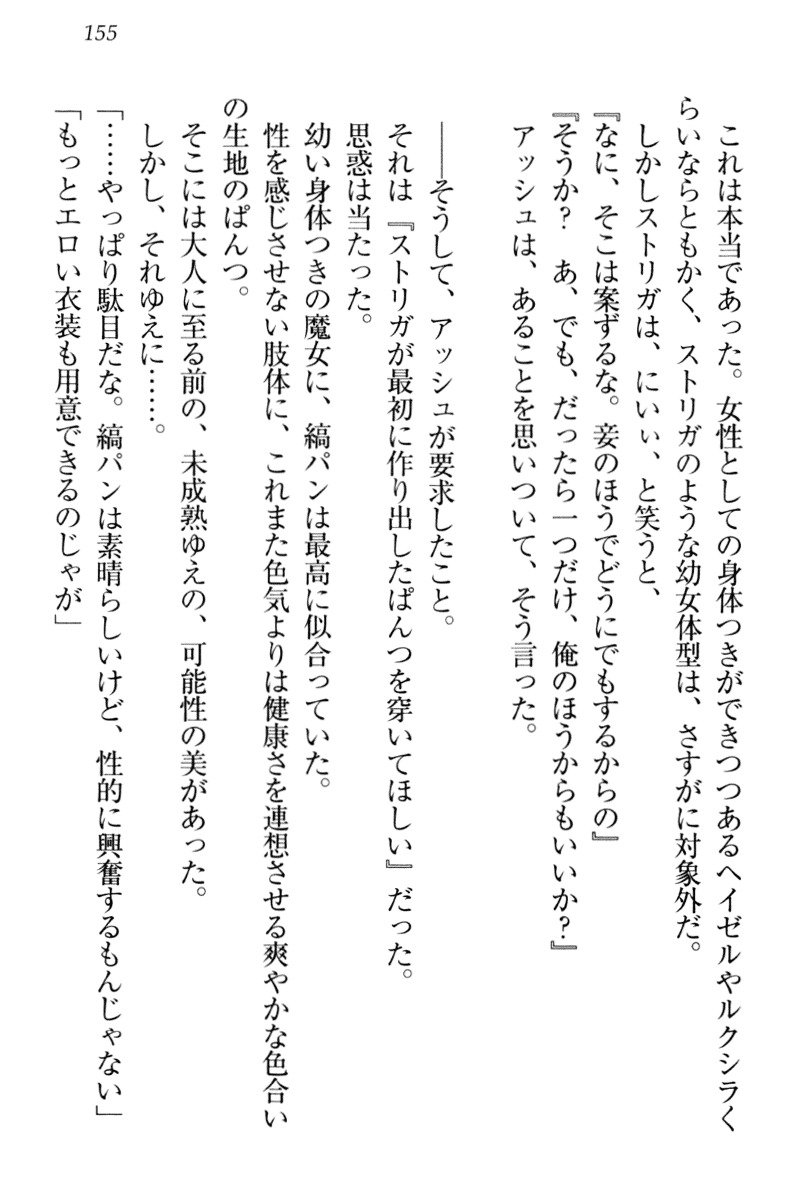 155
これは本当であった。女性としての身体つきができつつあるヘイゼルやルクシラく
らいならともかく、ストリガのような幼女体型は、さすがに対象外だ。
しかしストリガは、にいぃ、と笑うと、
『なに、そこは案ずるな。妾のほうでどうにでもするからの』
『そうか？　あ、でも、だったら一つだけ、俺のほうからもいいか？』
アッシュは、あることを思いついて、そう言った。
――そうして、アッシュが要求したこと。
それは『ストリガが最初に作り出したぱんつを穿いてほしい』だった。
思惑は当たった。
幼い身体つきの魔女に、縞パンは最高に似合っていた。
性を感じさせない肢体に、これまた色気よりは健康さを連想させる爽やかな色合い
の生地のぱんつ。
そこには大人に至る前の、未成熟ゆえの、可能性の美があった。
しかし、それゆえに……。
「……やっぱり駄目だな。縞パンは素晴らしいけど、性的に興奮するもんじゃない」
「もっとエロい衣装も用意できるのじゃが」